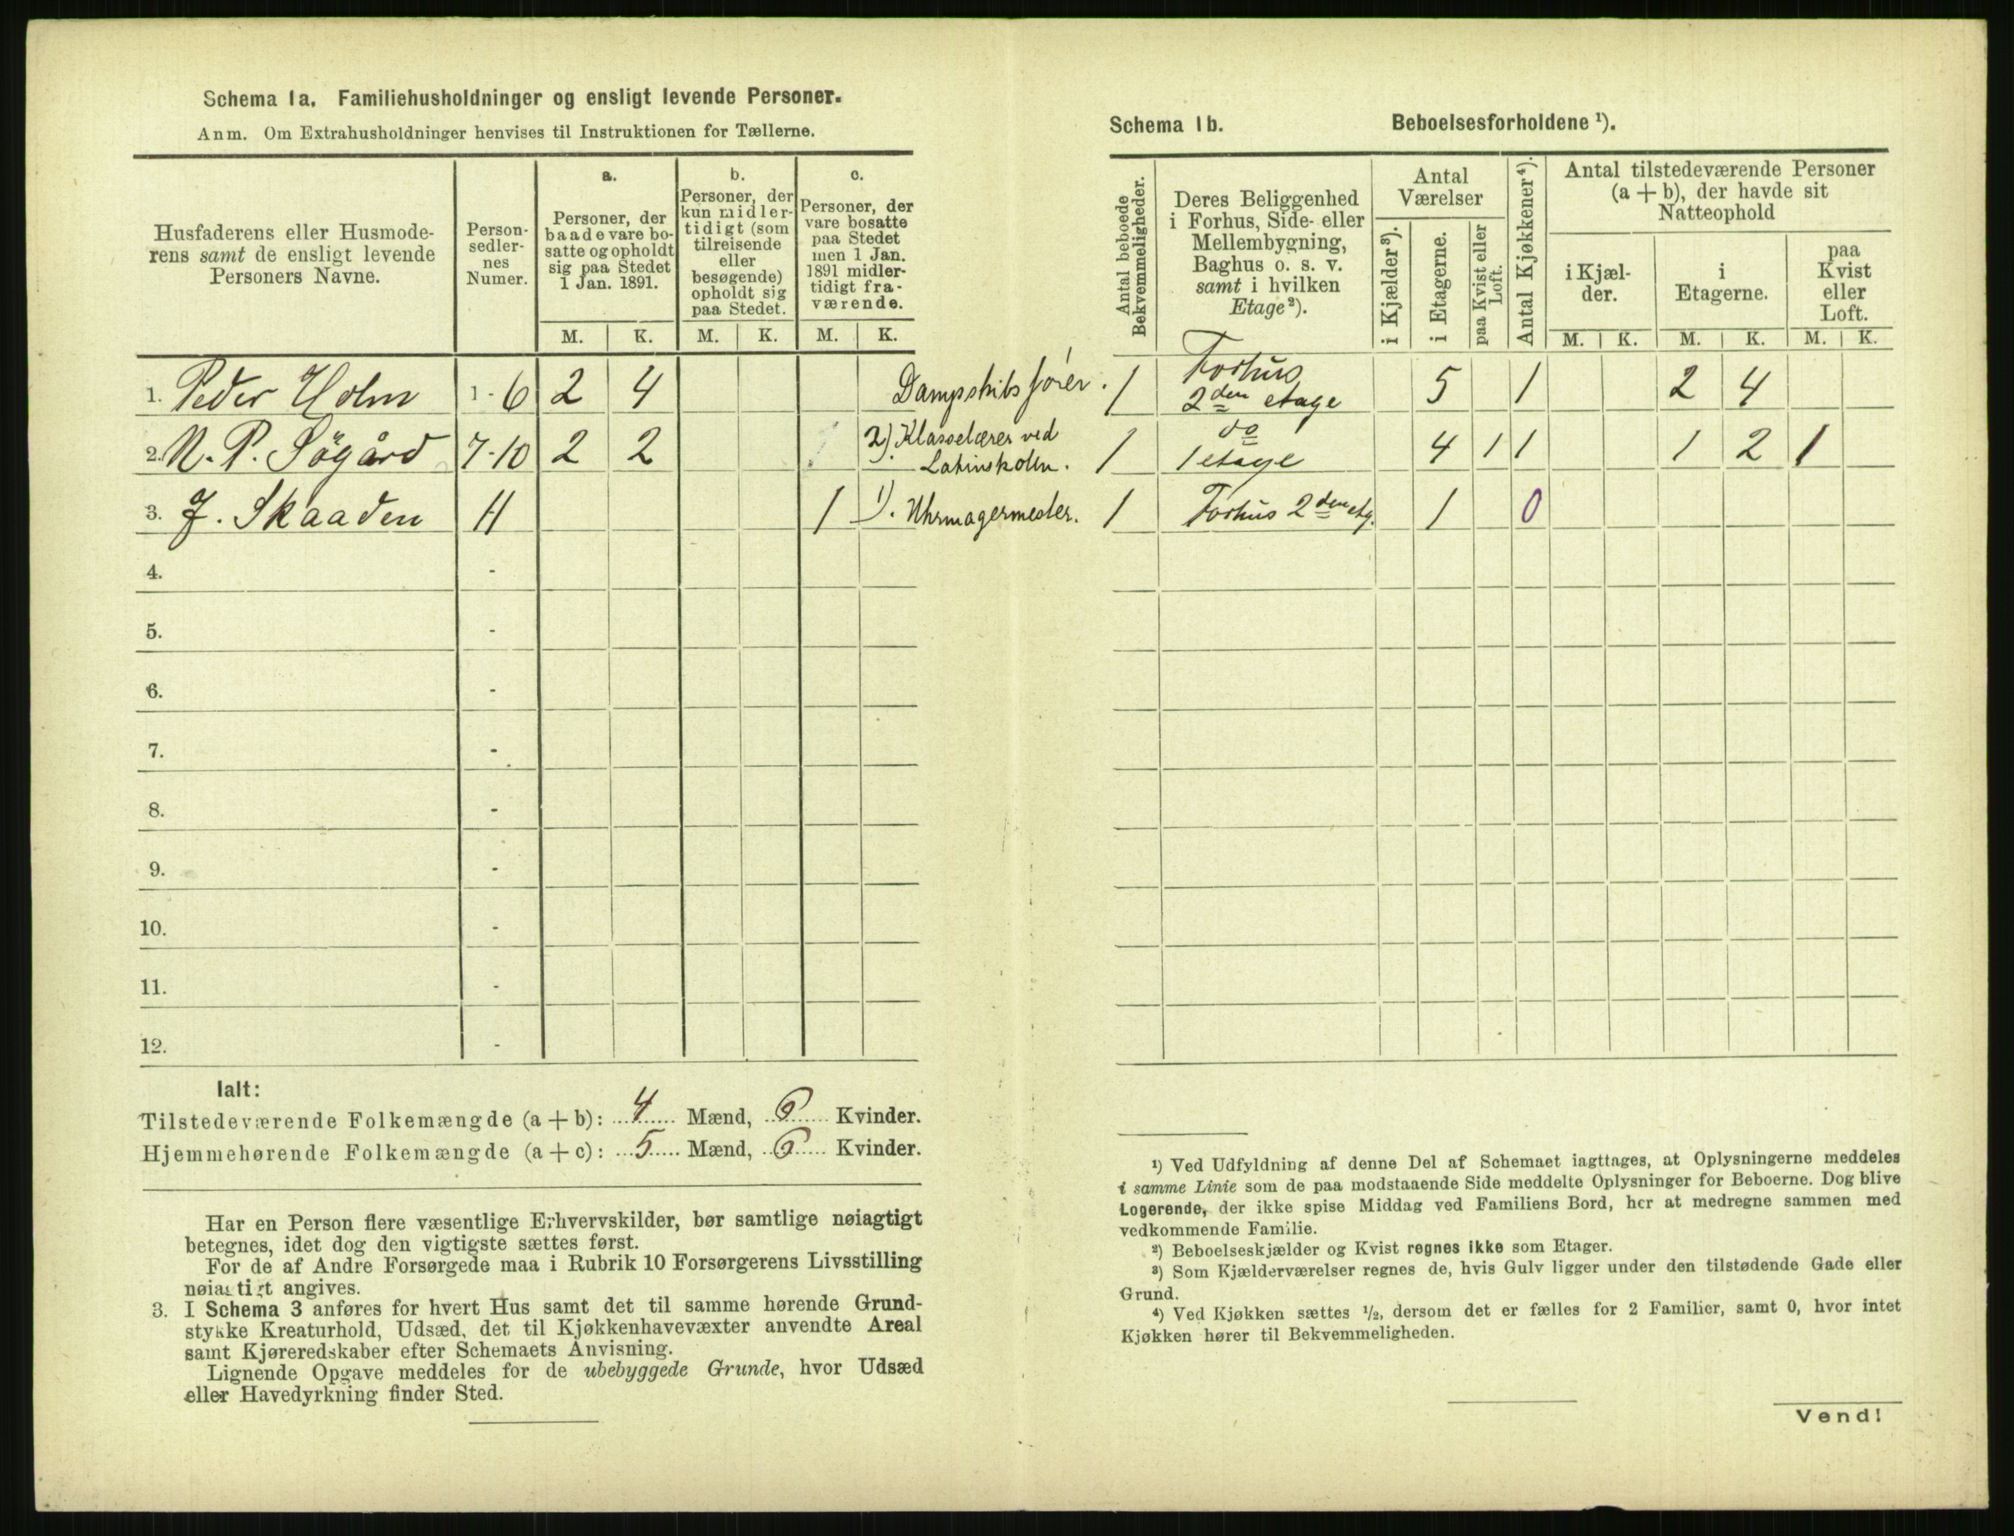 Schema 1a. Familiehusholdninger og ensligt levende Personer.
Anm. Om Extrahusholdninger henvises til Instruktionen for Tællerne.
Husfaderens eller Husmode-
rens samt de ensligt levende
Personers Navne.
Person-
sedler-
nes
Numer.
a.
Personer, der
baade vare bo-
satte og opholdt
sig paa Stedet
1 Jan. 1891.
b.
Personer, der
kun midler-
tidigt (som
tilreisende
eller
besøgende)
opholdt sig
paa Stedet.
c.
Personer, der
vare bosatte
paa Stedet
men 1 Jan.
1891 midler-
tidigt fra-
værende.
M. K. M. K. M. K.
1. Peder Holm 1-6 2 4 Dampskibsfører.
2. N. P. Søgård 7-10 2 2 2). Klasselærer ved
Latinskolen.
3. J. Skaaden 11 1 1). Uhrmagermester.
4. -
5. -
6. -
7. -
8. -
9. -
10. -
11. -
12. -
Ialt:
Tilstedeværende Folkemængde (a + b): 4 Mænd, 6 Kvinder.
Hjemmehørende Folkemængde (a + c): 5 Mænd, 6 Kvinder.
Har en Person flere væsentlige Erhvervskilder, bør samtlige nøiagtigt
betegnes, idet dog den vigtigste sættes først.
For de af Andre Forsørgede maa i Rubrik 10 Forsørgerens Livsstilling
nøiagtigt angives.
3. I Schema 3 anføres for hvert Hus samt det til samme hørende Grund-
stykke Kreaturhold, Udsæd, det til Kjøkkenhavevæxter anvendte Areal
samt Kjøreredskaber efter Schemaets Anvisning.
Lignende Opgave meddeles for de ubebyggede Grunde, hvor Udsæd
eller Havedyrkning finder Sted.
Schema 1b. Beboelsesforholdene ¹).
Antal beboede
Bekvemmeligheder.
Deres Beliggenhed
i Forhus, Side- eller
Mellembygning,
Baghus o. s. v.
samt i hvilken
Etage²).
Antal
Værelser
i Kjælder³).
i Etagerne.
paa Kvist eller
Loft.
Antal Kjøkkener⁴).
Antal tilstedeværende Personer
(a + b), der havde sit
Natteophold
i Kjæl-
der.
i
Etagerne.
paa
Kvist
eller
Loft.
M. K. M. K. M. K.
1 Forhus
2den etage 5 1 2 4
1 do
1 etage 4 1 1 1 2 1
1 Forhus 2den etg. 1 0
¹) Ved Udfyldning af denne Del af Schemaet iagttages, at Oplysningerne meddeles
i samme Linie som de paa modstaaende Side meddelte Oplysninger for Beboerne. Dog blive
Logerende, der ikke spise Middag ved Familiens Bord, her at medregne sammen med
vedkommende Familie.
²) Beboelseskjælder og Kvist regnes ikke som Etager.
³) Som Kjælderværelser regnes de, hvis Gulv ligger under den tilstødende Gade eller
Grund.
⁴) Ved Kjøkken sættes ½, dersom det er fælles for 2 Familier, samt 0, hvor intet
Kjøkken hører til Bekvemmeligheden.
Vend!